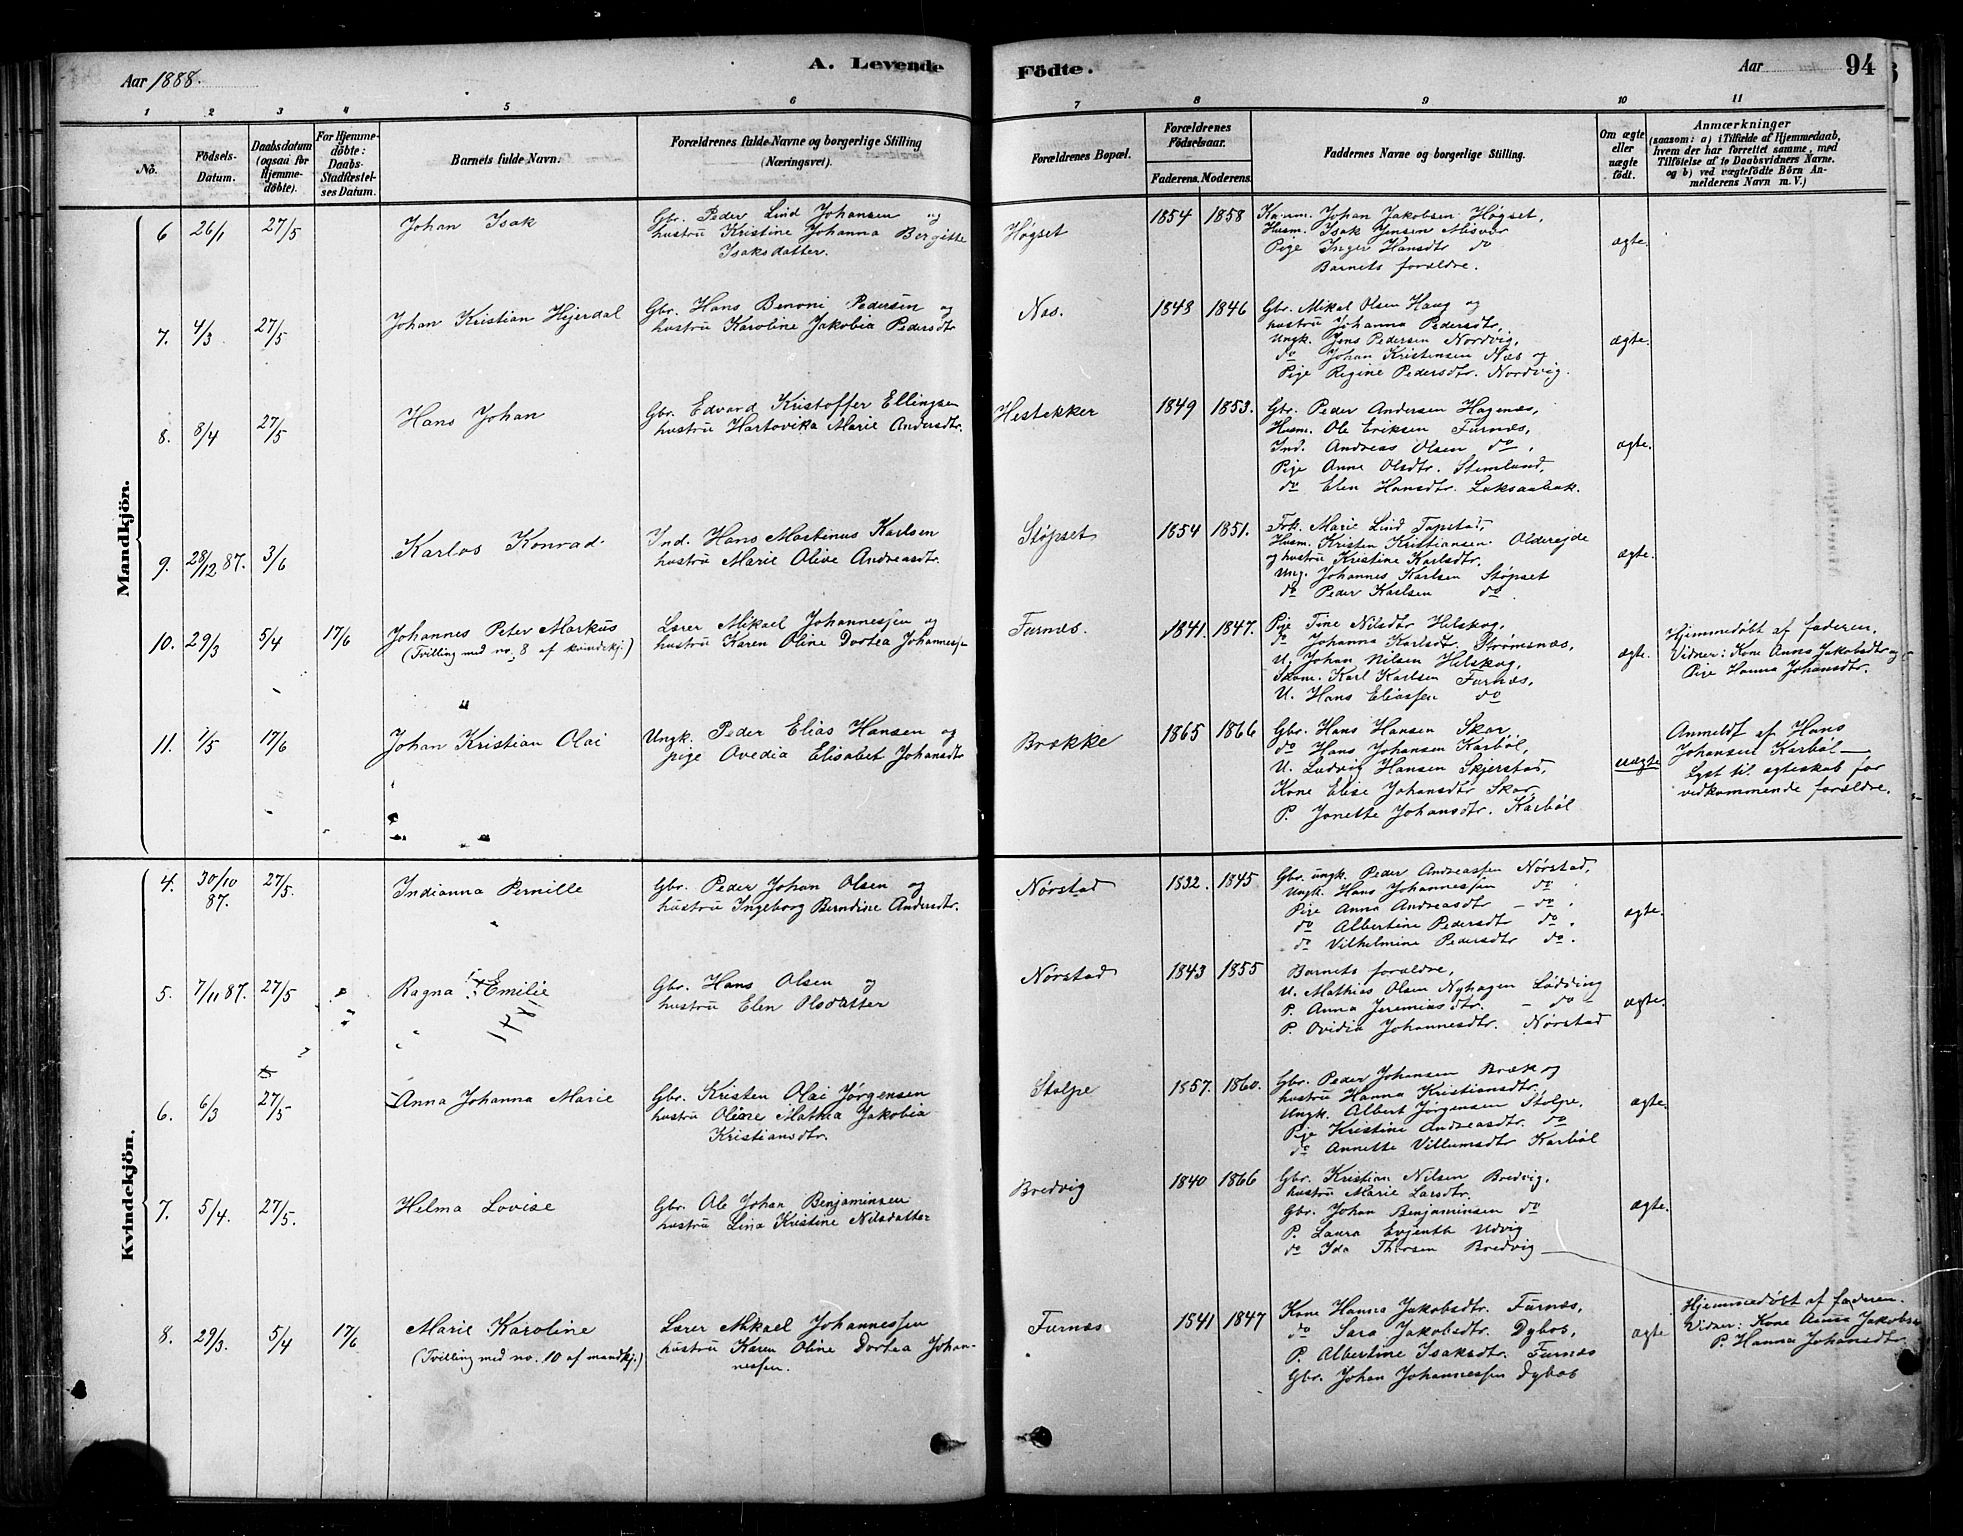 Aar 1888.
A. Levende
Födte.
Aar
94
1 2 3 4 5 6 7 8 9 10 11
No.
Födsels-
Datum.
Daabsdatum
(ogsaa for
Hjemme-
döbte).
For Hjemme-
döbte:
Daabs-
Stadfæstel-
ses Datum.
Barnets fulde Navn.
Forældrenes fulde Navne og borgerlige Stilling
(Næringsvei).
Forældrenes Bopæl.
Forældrenes
Födselsaar.
Faderens. Moderens.
Faddernes Navne og borgerlige Stilling.
Om ægte
eller
uægte
födt.
Anmærkninger
(saasom: a) i Tilfælde af Hjemmedaab,
hvem der har forrettet samme, med
Tilföielse af to Daabsvidners Navne.
og b) ved uægtefödte Börn An-
melderens Navn m. V.)
Mandkjön.
6 26/1 27/5
Johan Isak
Gbr. Peder Lind Johansen og
hustru Kristine Johanna Bergitte
Isaksdatter.
Høgset
1854 1858
Kaarm. Johan Jakobsen Høgset,
Husm. Isak Jensen Misvær
Pige Inger Hansdtr do
Barnets forældre.
ægte.
7. 4/3 27/5
Johan Kristian Hjerdal
Gbr. Hans Benoni Pedersen og
hustru Karoline Jakobia Pedersdtr
Næs.
1848 1846
Gbr. Mikal Olsen Haug og
hustru Johanna Pedersdtr,
Ungk. Jens Pedersen Nordvig,
do Johan Kristensen Næs og
Pige Regine Pedersdtr. Nordvig.
ægte.
8. 8/4 27/5
Hans Johan
Gbr. Edvard Kristoffer Ellingsen
hustru Hartovika Marie Andersdtr.
Hestekker
1849 1853.
Gbr. Peder Andersen Hagenæs,
Husm. Ole Eriksen Furnæs,
Ind. Andreas Olsen do,
Pige Anne Olsdtr. Stemland,
do Elen Hansdtr. Laksaabak.
ægte.
9. 28/12 87. 3/6
Karlos Konrad.
Ind. Hans Martinus Karlsen
hustru Marie Olive Andreasdtr.
Støpset
1854 1851.
Frk. Marie Lind Topstad,
Husm. Kristen Kristiansen Oldereide
og hustru Kristine Karlsdtr.
Ung. Johannes Karlsen Støpset
do Peder Karlsen do.
ægte.
10. 29/3 5/4 17/6
Johannes Peter Markus
(Tvilling med no. 8 af kvindekj.)
Lærer Mikael Johannessen og
hustru Karen Oline Dortea Johannessen
Furnæs.
1841. 1847.
Pige Tine Nilsdtr Helskog,
do Johanna Karlsdtr. Strømsnæs,
U. Johan Nilsen Helskog,
Skom. Karl Karlsen Furnæs,
U. Hans Eliassen do
ægte.
Hjemmedøbt af faderen.
Vidner: Kone Anna Jakobsdtr og
Pige Hanna Johansdtr.
11. 1/5 17/6
Johan Kristian Olai
Ungk. Peder Elias Hansen og
pige Ovedia Elisabet Johansdtr
Brække
1865 1866
Gbr. Hans Hansen Skar,
do Hans Johansen Karbøl,
U. Ludvig Hansen Skjerstad,
Kone Elise Johansdtr Skar,
P. Jonette Johansdtr. Karbøl
uægte
Anmeldt af Hans
Johansen Karbøl—
Lyst til ægteskab for
vedkommende forældre.
Kvindekjön.
4. 30/10 87. 27/5.
Indianna Pernille
Gbr. Peder Johan Olsen og
hustru Ingeborg Berndine Andersdtr.
Nørstad
1832. 1845
Gbr. ungk. Peder Andreassen Nørstad,
Ungk. Hans Johannessen do.
Pige Anna Andreasdtr — do.
do Albertine Pedersdtr do.
do Vilhelmine Pedersdtr do.
ægte.
5. 7/11 87. 27/5
Ragna Emilie
Gbr. Hans Olsen og
hustru Elen Olsdatter
Nørstad
1843 1855
Barnets forældre,
U. Mathias Olsen Nyhagen Lødding
P. Anna Jeremiasdtr. — do
P. Ovidia Johannesdtr. Nørstad
ægte.
6. 6/3 27/5
Anna Johanna Marie
Gbr. Kristen Olai Jørgensen
hustru Oline Mathea Jakobia
Kristiansdtr.
Stolpe
1857. 1860.
Gbr. Peder Johansen Bræk og
hustru Hanna Kristiansdtr.
Ungk. Albert Jørgensen Stolpe,
Pige Kristine Andreasdtr. do
do Annette Villumsdtr Karbøl
ægte.
7. 5/4. 27/5.
Helma Lovise
Gbr. Ole Johan Benjaminsen
hustru Lina Kristine Nilsdatter
Bredvig
1840 1866
Gbr. Kristian Nilsen Bredvig,
hustru Marie Larsdtr.
Gbr. Johan Benjaminsen do
P. Laura Evjenth Udvig
do Ida Thorsen Bredvig—
ægte.
8. 29/3. 5/4 17/6
Marie Karoline
(Tvilling med no. 10 af mandkj.)
Lærer Mikael Johannessen
hustru Karen Oline Dortea Johan-
nessen.
Furnæs
1841 1847
Kone Hanna Jakobsdtr. Furnæs,
do Sara Jakobsdtr. Dybos,
P. Albertine Isaksdtr. Furnæs
Gbr. Johan Johannessen Dybos
ægte
Hjemmedøbt af faderen.
Vidner: Kone Anna Jakobsdtr
P. Hanna Johansdtr.